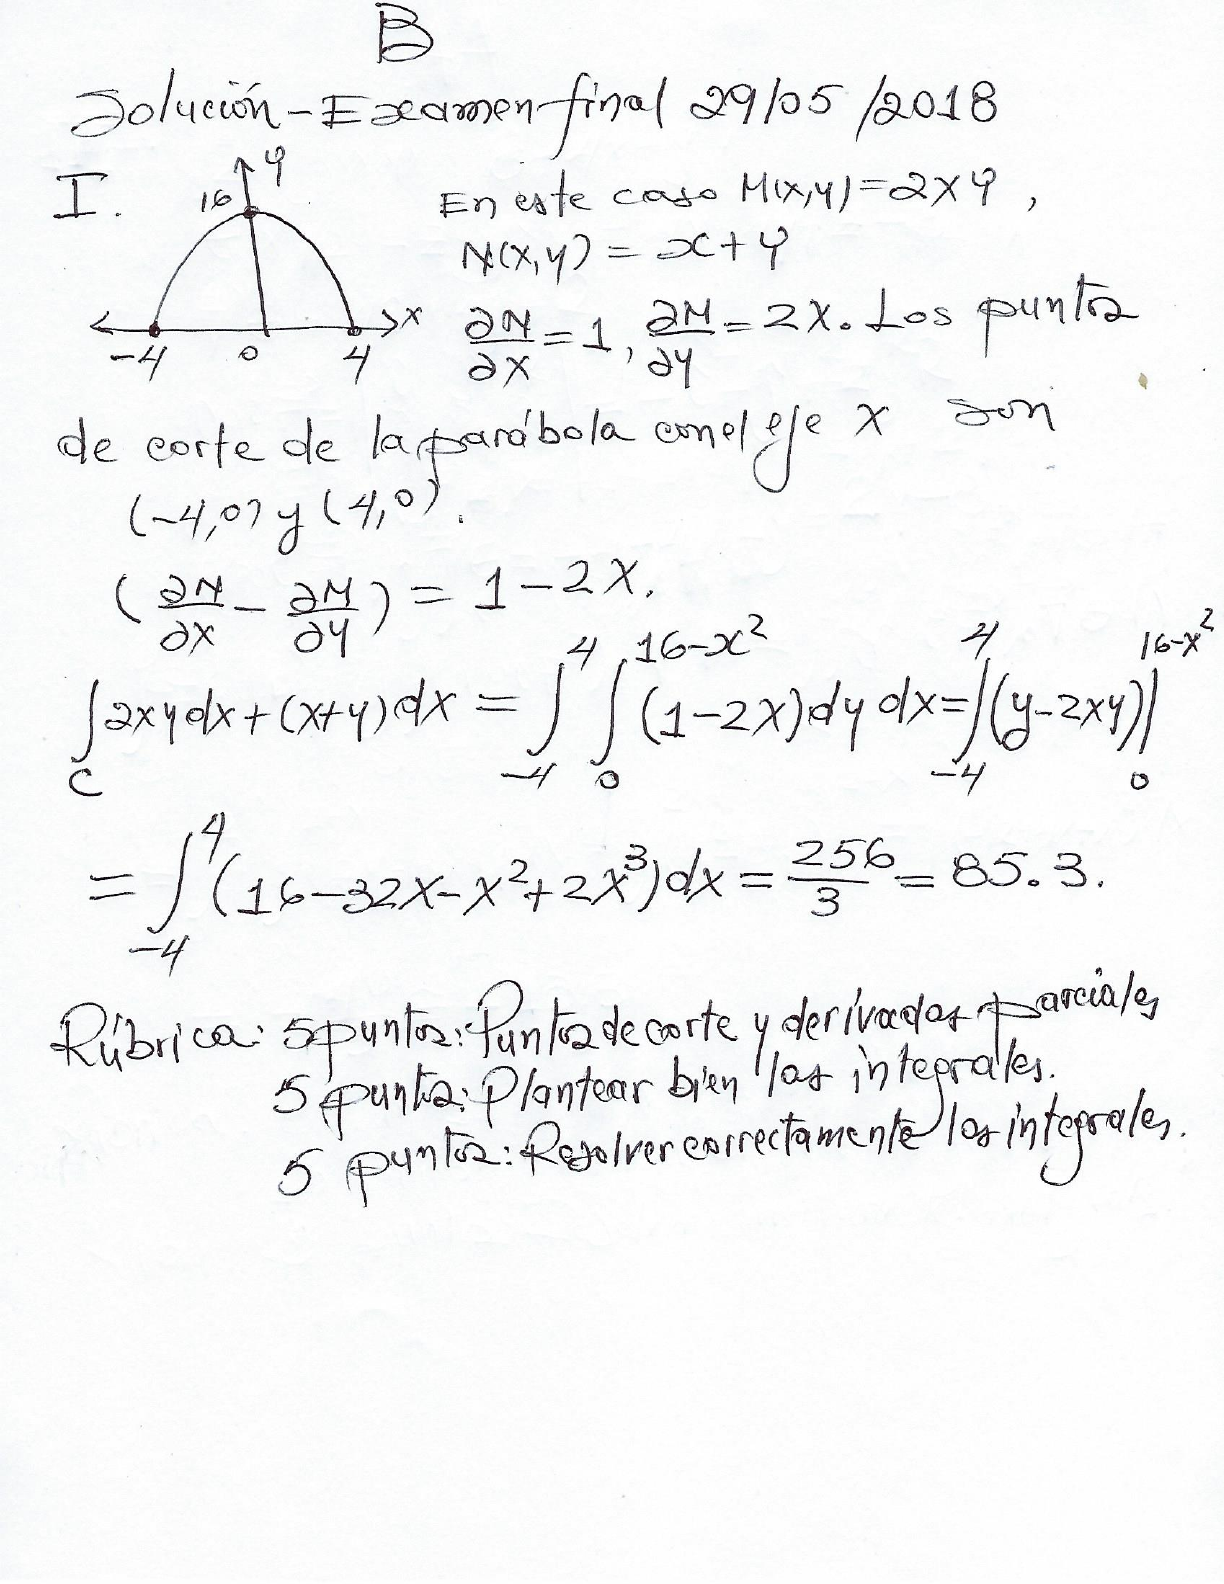 B
Solución - Examen final 29/05/2018
I.
16 y
-4 0 4 x
En este caso M(x,y)=2xy,
N(x,y) = x+y
∂N/∂x = 1, ∂M/∂y = 2x. Los puntos
de corte de la parábola con el eje x son
(-4,0) y (4,0).
(∂N/∂x - ∂M/∂y) = 1-2x.
∫_C 2xydx+(x+y)dx = ∫_{-4}^{4} ∫_0^{16-x²} (1-2x)dy dx = ∫_{-4}^{4} (y-2xy)|_0^{16-x²}
= ∫_{-4}^{4} (16-32x-x²+2x³)dx = 256/3 = 85.3.
Rúbrica: 5 puntos: Puntos de corte y derivadas parciales
5 puntos: Plantear bien las integrales.
5 puntos: Resolver correctamente las integrales.